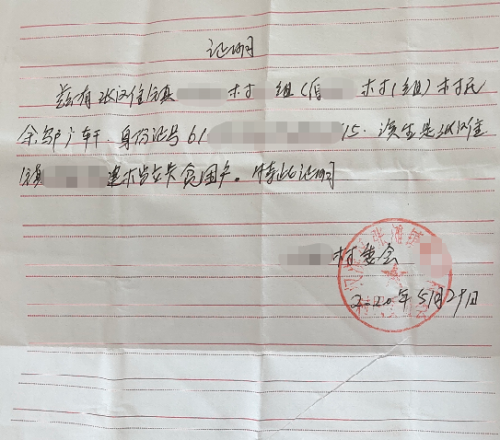 证明
兹有张滩镇 村 组(原 村(组)村民
余邹 轩.身份证号61 15.该生是张滩
镇 建档立卡贫困户。特此证明
村委会
2020年5月29日